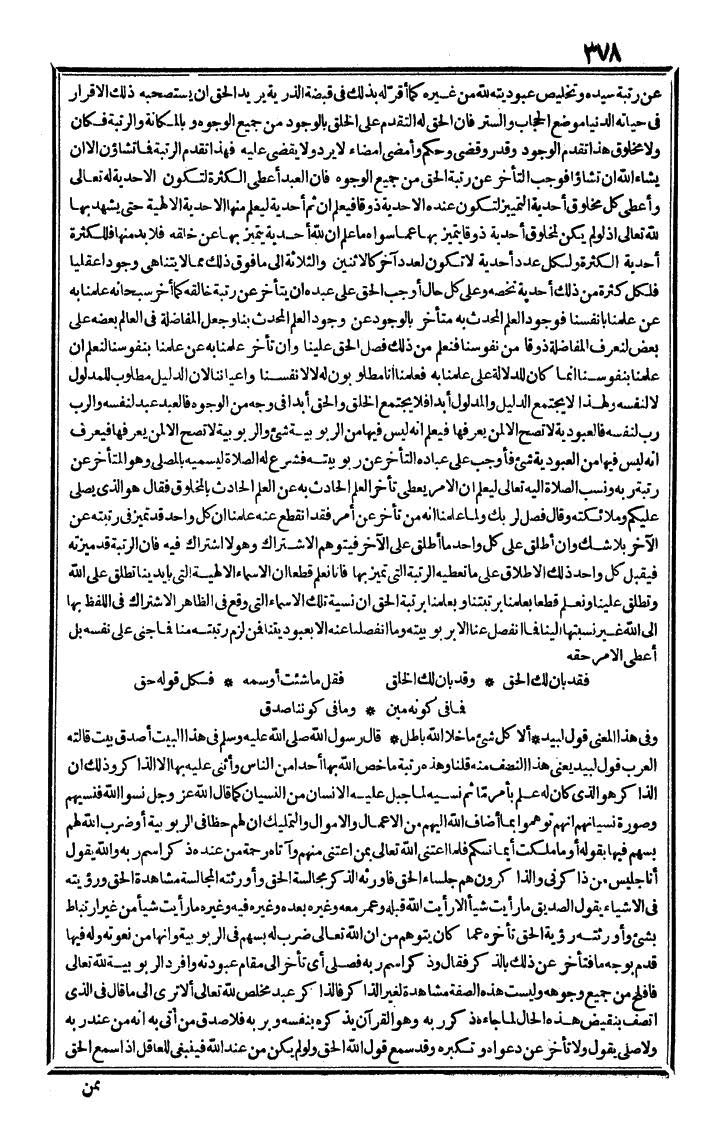 ٣٧٨
عن رتبة سيده وتخليص عبوديته لله من غيره كما أقرّ له بذلك فى قبضة الذرية يريد الحق ان يستصحبه ذلك الاقرار
فى حياته الدنيا موضع الحجاب والستر فان الحق له التقدم على الخلق بالوجود من جميع الوجوه وبالمكانة والرتبة فكان
ولا مخلوق هذا تقدم الوجود وقدر وقضى وحكم وأمضى امضاء لا يرد ولا يقضى عليه فهذا تقدم الرتبة فا تشاؤن الا ان
يشاء الله ان تشاؤا فوجب التأخر عن رتبة الحق من جميع الوجوه فان العبد أعطى الكثرة لتكون الاحدية له تعالى
وأعطى كل مخلوق أحدية التمييز لتكون عنده الاحدية ذوقا فيعلم ان ثم أحدية ليعلم منها الاحدية الالهية حتى يشهد بها
لله تعالى اذ لو لم يكن لمخلوق أحدية ذوقا يتميز بها عما سواه ما علم ان لله أحدية يتميز بها عن خلقه فلا بد منها فللكثرة
أحدية الكثرة ولكل عدد أحدية لا تكون لعدد آخر كالاثنين والثلاثة الى ما فوق ذلك مما لا يتناهى وجودا عقليا
فلكل كثرة من ذلك أحدية تخصه وعلى كل حال أوجب الحق على عبده ان يتأخر عن رتبة خالقه كما أخر سبحانه علمنا به
عن علمنا بانفسنا فوجود العلم المحدث به متأخر بالوجود عن وجود العلم المحدث بنا وجعل المفاضلة فى العالم بعضه على
بعض لنعرف المفاضلة ذوقا من نفوسنا فنعلم من ذلك فصل الحق علينا وان تأخر علمنا به عن علمنا بنفوسنا لنعلم ان
علمنا بنفوسنا انما كان للدلالة على علمنا به فعلمنا انا مطلوبون له لا لانفسنا وأعياننا لان الدليل مطلوب للمدلول
لا لنفسه ولهذا لا يجتمع الدليل والمدلول أبدا فلا يجتمع الخلق والحق أبدا فى وجه من الوجوه فالعبد عبد لنفسه والرب
رب لنفسه فالعبودية لا تصح الا لمن يعرفها فيعلم انه ليس فيها من الربوبية شئ والربوبية لا تصح الا لمن يعرفها فيعرف
انه ليس فيها من العبودية شئ فأوجب على عباده التأخر عن ربوبيته فشرع له الصلاة ليسميه بالمصلى وهو المتأخر عن
رتبة ربه ونسب الصلاة اليه تعالى ليعلم ان الامر يعطى تأخر العلم الحادث به عن العلم الحادث بالمخلوق فقال هو الذى يصلى
عليكم وملائكته وقال فصل لربك ولما علمنا انه من تأخر عن أمر فقد انقطع عنه علمنا ان كل واحد قد تميز فى رتبته عن
الآخر بلا شك وان أطلق على كل واحد ما أطلق على الآخر فيتوهم الاشتراك وهو لا اشتراك فيه فان الرتبة قد ميزته
فيقبل كل واحد ذلك الاطلاق على ما تعطيه الرتبة التى تميز بها فانا نعلم قطعا ان الاسماء الالهية التى بايدينا تطلق على الله
وتطلق علينا ونعلم قطعا بعلمنا برتبتنا وبعلمنا برتبة الحق ان نسبة تلك الاسماء التى وقع فى الظاهر الاشتراك فى اللفظ بها
الى الله غير نسبتها الينا فما انفصل عنا الا بربوبيته وما انفصلنا عنه الا بعبوديتنا فمن لزم رتبته منا فما جنى على نفسه بل
أعطى الامر حقه
فقد بان لك الحق * وقد بان لك الخلق فقل ما شئت أو سمه * فكل قوله حق
فما فى كونه مين * وما فى كوننا صدق
وفى هذا المعنى قول لبيد * ألا كل شئ ما خلا الله باطل * قال رسول الله صلى الله عليه وسلم فى هذا البيت أصدق بيت قالته
العرب قول لبيد يعنى هذا النصف منه قلنا وهذه رتبة ما خص الله بها أحدا من الناس وأثنى عليه بها الا الذاكر وذلك ان
الذاكر هو الذى كان له علم بأمر مّا ثم نسيه لما جبل عليه الانسان من النسيان كما قال الله عز وجل نسوا الله فنسيهم
وصورة نسيانهم انهم توهموا بما أضاف الله اليهم من الاعمال والاموال والتمليك ان لهم حظا فى الربوبية أو ضرب الله لهم
بسهم فيها بقوله أو ما ملكت أيمانكم فلما اعتنى الله تعالى بمن اعتنى منهم وآتاه رحمة من عنده ذكر اسم ربه والله يقول
أنا جليس من ذكرنى والذاكرون هم جلساء الحق فاورثه الذكر مجالسة الحق وأورثته المجالسة مشاهدة الحق ورؤيته
فى الاشياء يقول الصديق ما رأيت شيأ الا رأيت الله قبله وعمر معه وغيره بعده وغيره فيه وغيره ما رأيت شيأ من غير ارتباط
بشئ وأورثته رؤية الحق تأخره عما كان يتوهم من ان الله تعالى ضرب له بسهم فى الربوبية وانها من نعوته وله فيها
قدم بوجه ما فتأخر عن ذلك بالذكر فقال وذكر اسم ربه فصلى أى تأخر الى مقام عبودته وافرد الربوبية لله تعالى
فافلح من جميع وجوهه وليست هذه الصفة مشاهدة لغير الذاكر فالذاكر عبد مخلص لله تعالى ألا ترى الى ما قال فى الذى
اتصف بنقيض هذه الحال لما جاءه ذكر ربه وهو القرآن يذكره بنفسه وبربه فلا صدق من أتى به انه من عند ربه
ولا صلى يقول ولا تأخر عن دعواه وتكبره وقد سمع قول الله الحق ولو لم يكن من عند الله فينبغى للعاقل اذا سمع الحق
بمن